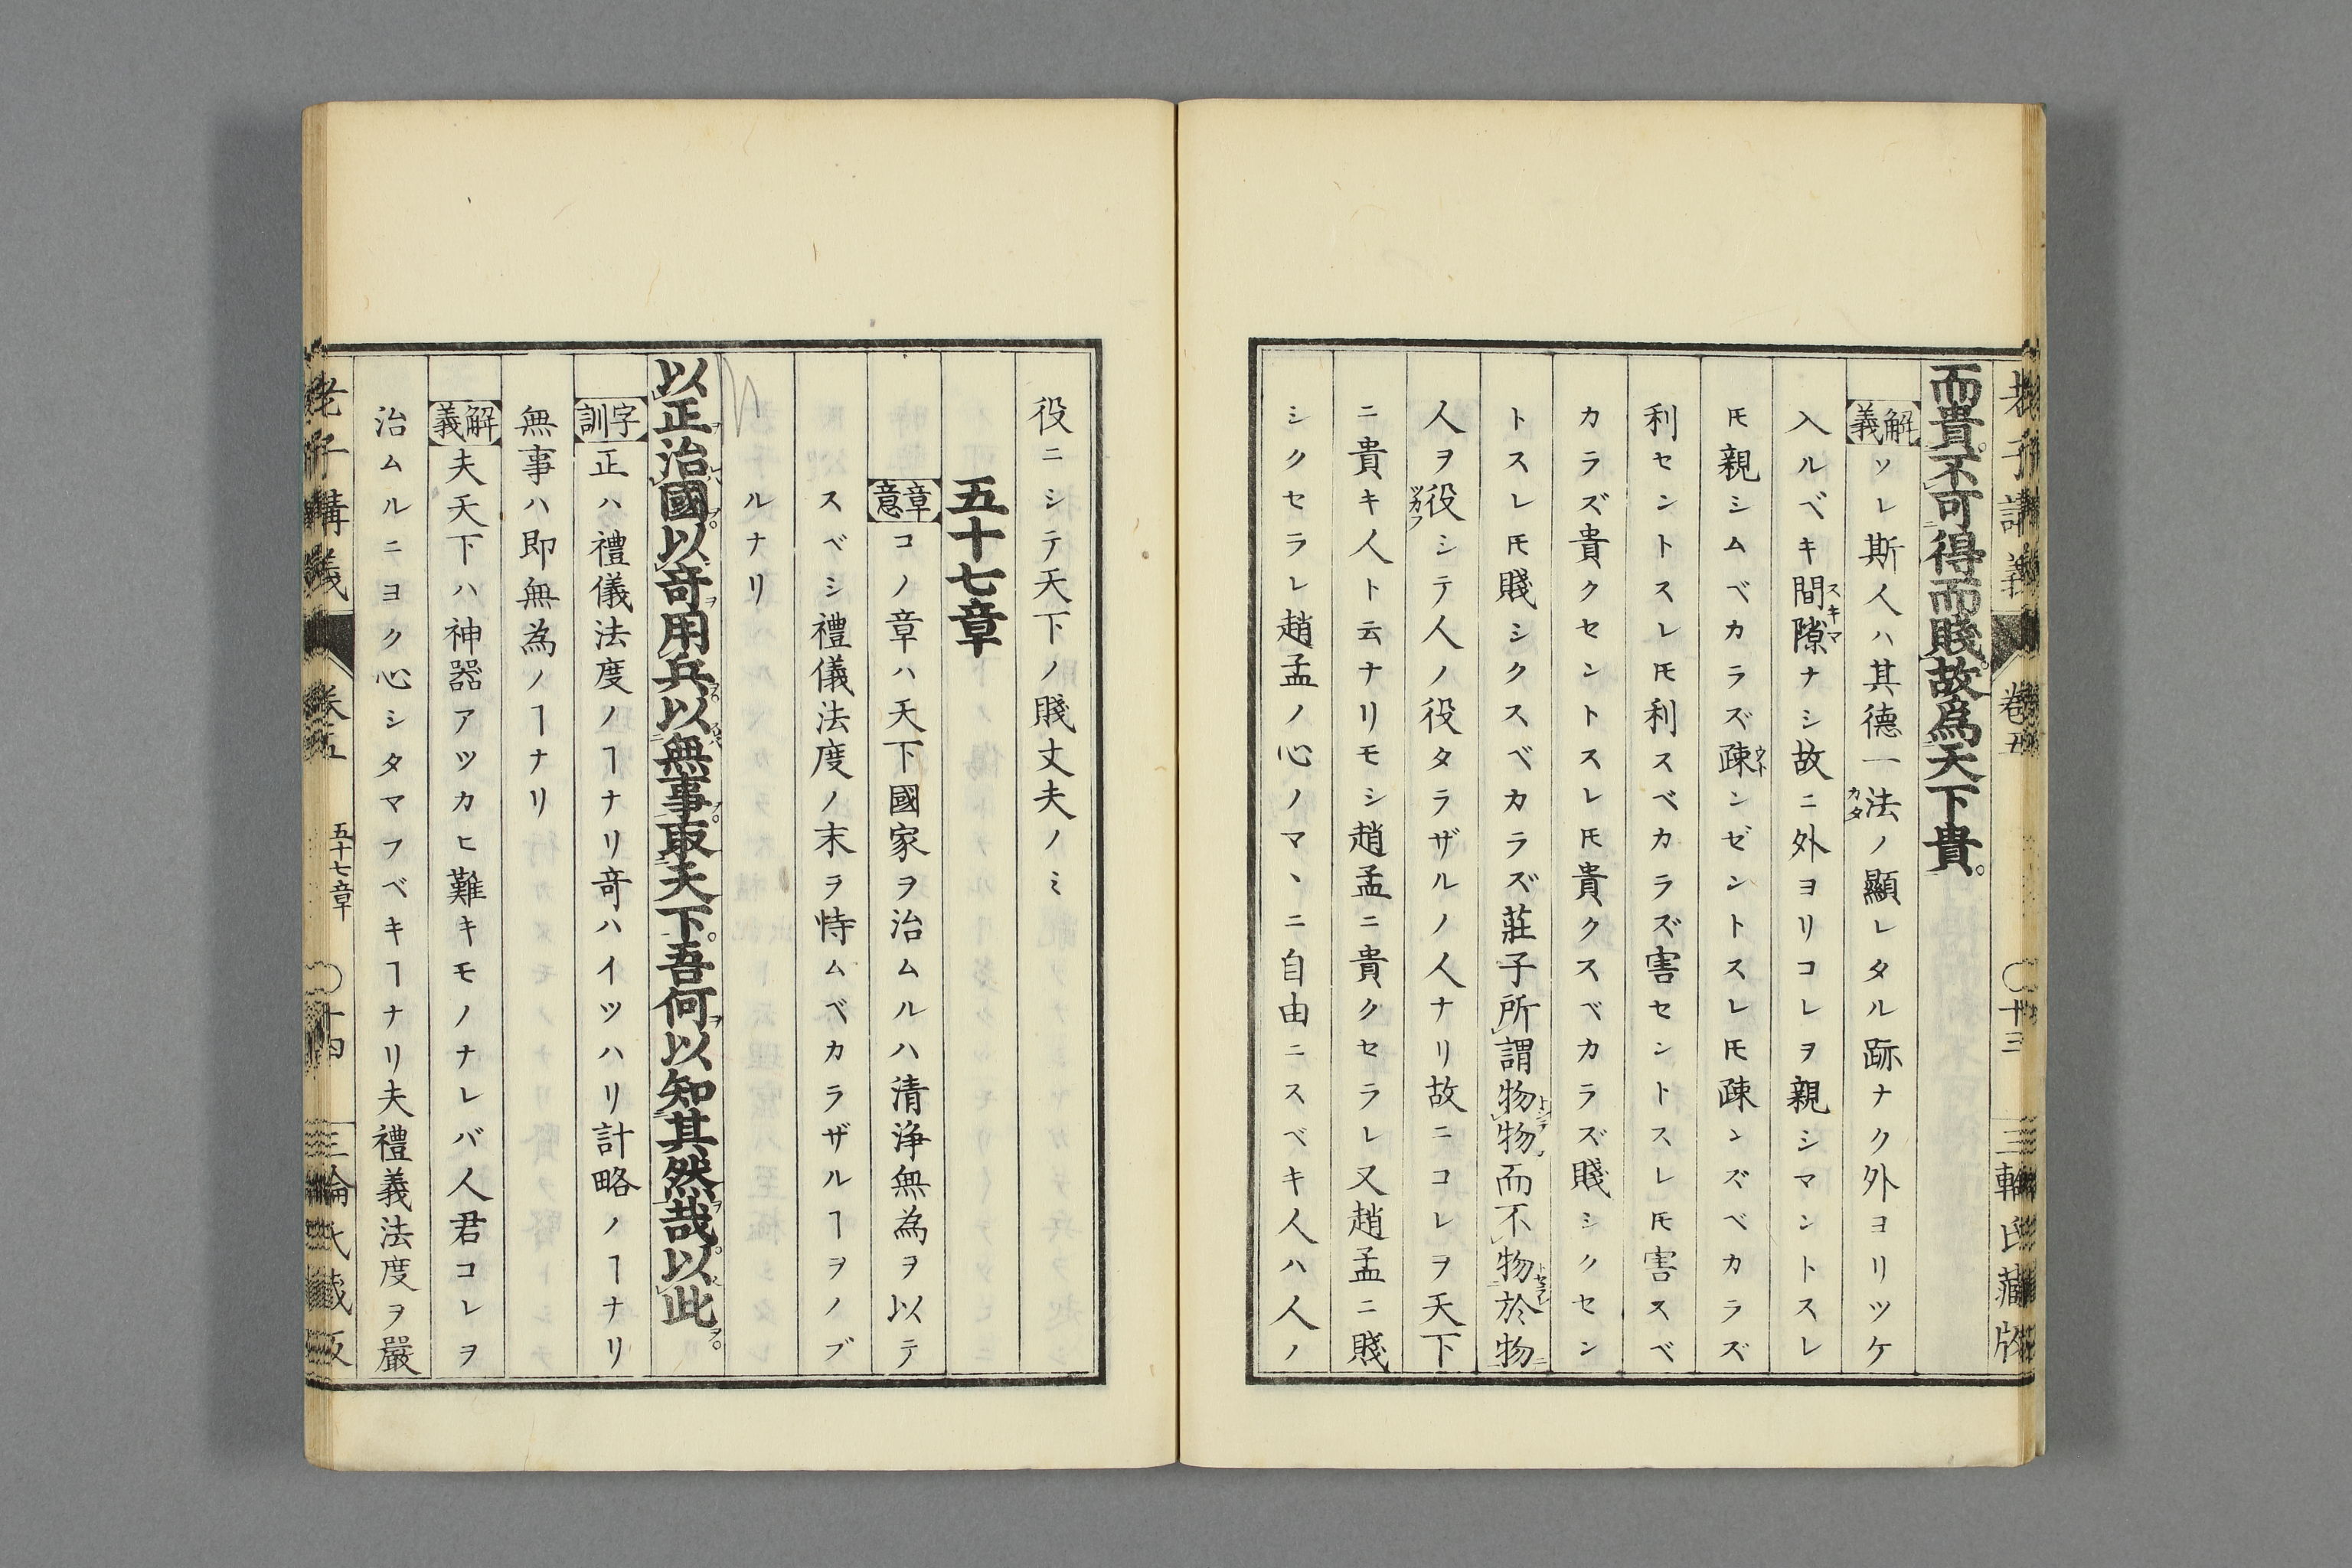 老子講義 卷五 〇十三 三輪氏藏版
而貴。不可得而賤。故爲天下貴。
解義 ソレ斯人ハ其德一法ノ顯レタル跡ナク外ヨリツケ
入ルベキ間隙ナシ故ニ外ヨリコレヲ親シマントスレ
𪜈親シムベカラズ疎ンゼントスレ𪜈疎ンズベカラズ
利セントスレ𪜈利スベカラズ害セントスレ𪜈害スベ
カラズ貴クセントスレ𪜈貴クスベカラズ賤シクセン
トスレ𪜈賤シクスベカラズ莊子所謂物物而不物於物
人ヲ役シテ人ノ役タラザルノ人ナリ故ニコレヲ天下
ニ貴キ人ト云ナリモシ趙孟ニ貴クセラレ又趙孟ニ賤
シクセラレ趙孟ノ心ノマヽニ自由ニスベキ人ハ人ノ
役ニシテ天下ノ賤丈夫ノミ
五十七章
章意 コノ章ハ天下國家ヲ治ムルハ清浄無為ヲ以テ
スベシ禮儀法度ノ末ヲ恃ムベカラザルヿヲノブ
ルナリ
以正治國。以奇用兵。以無事取天下。吾何以知其然哉。以此。
字訓 正ハ禮儀法度ノヿナリ奇ハイツハリ計略ノヿナリ
無事ハ即無為ノヿナリ
解義 夫天下ハ神器アツカヒ難キモノナレバ人君コレヲ
治ムルニヨク心シタマフベキヿナリ夫禮義法度ヲ嚴
老子講義 卷五 五十七章 〇十四 三輪氏藏版